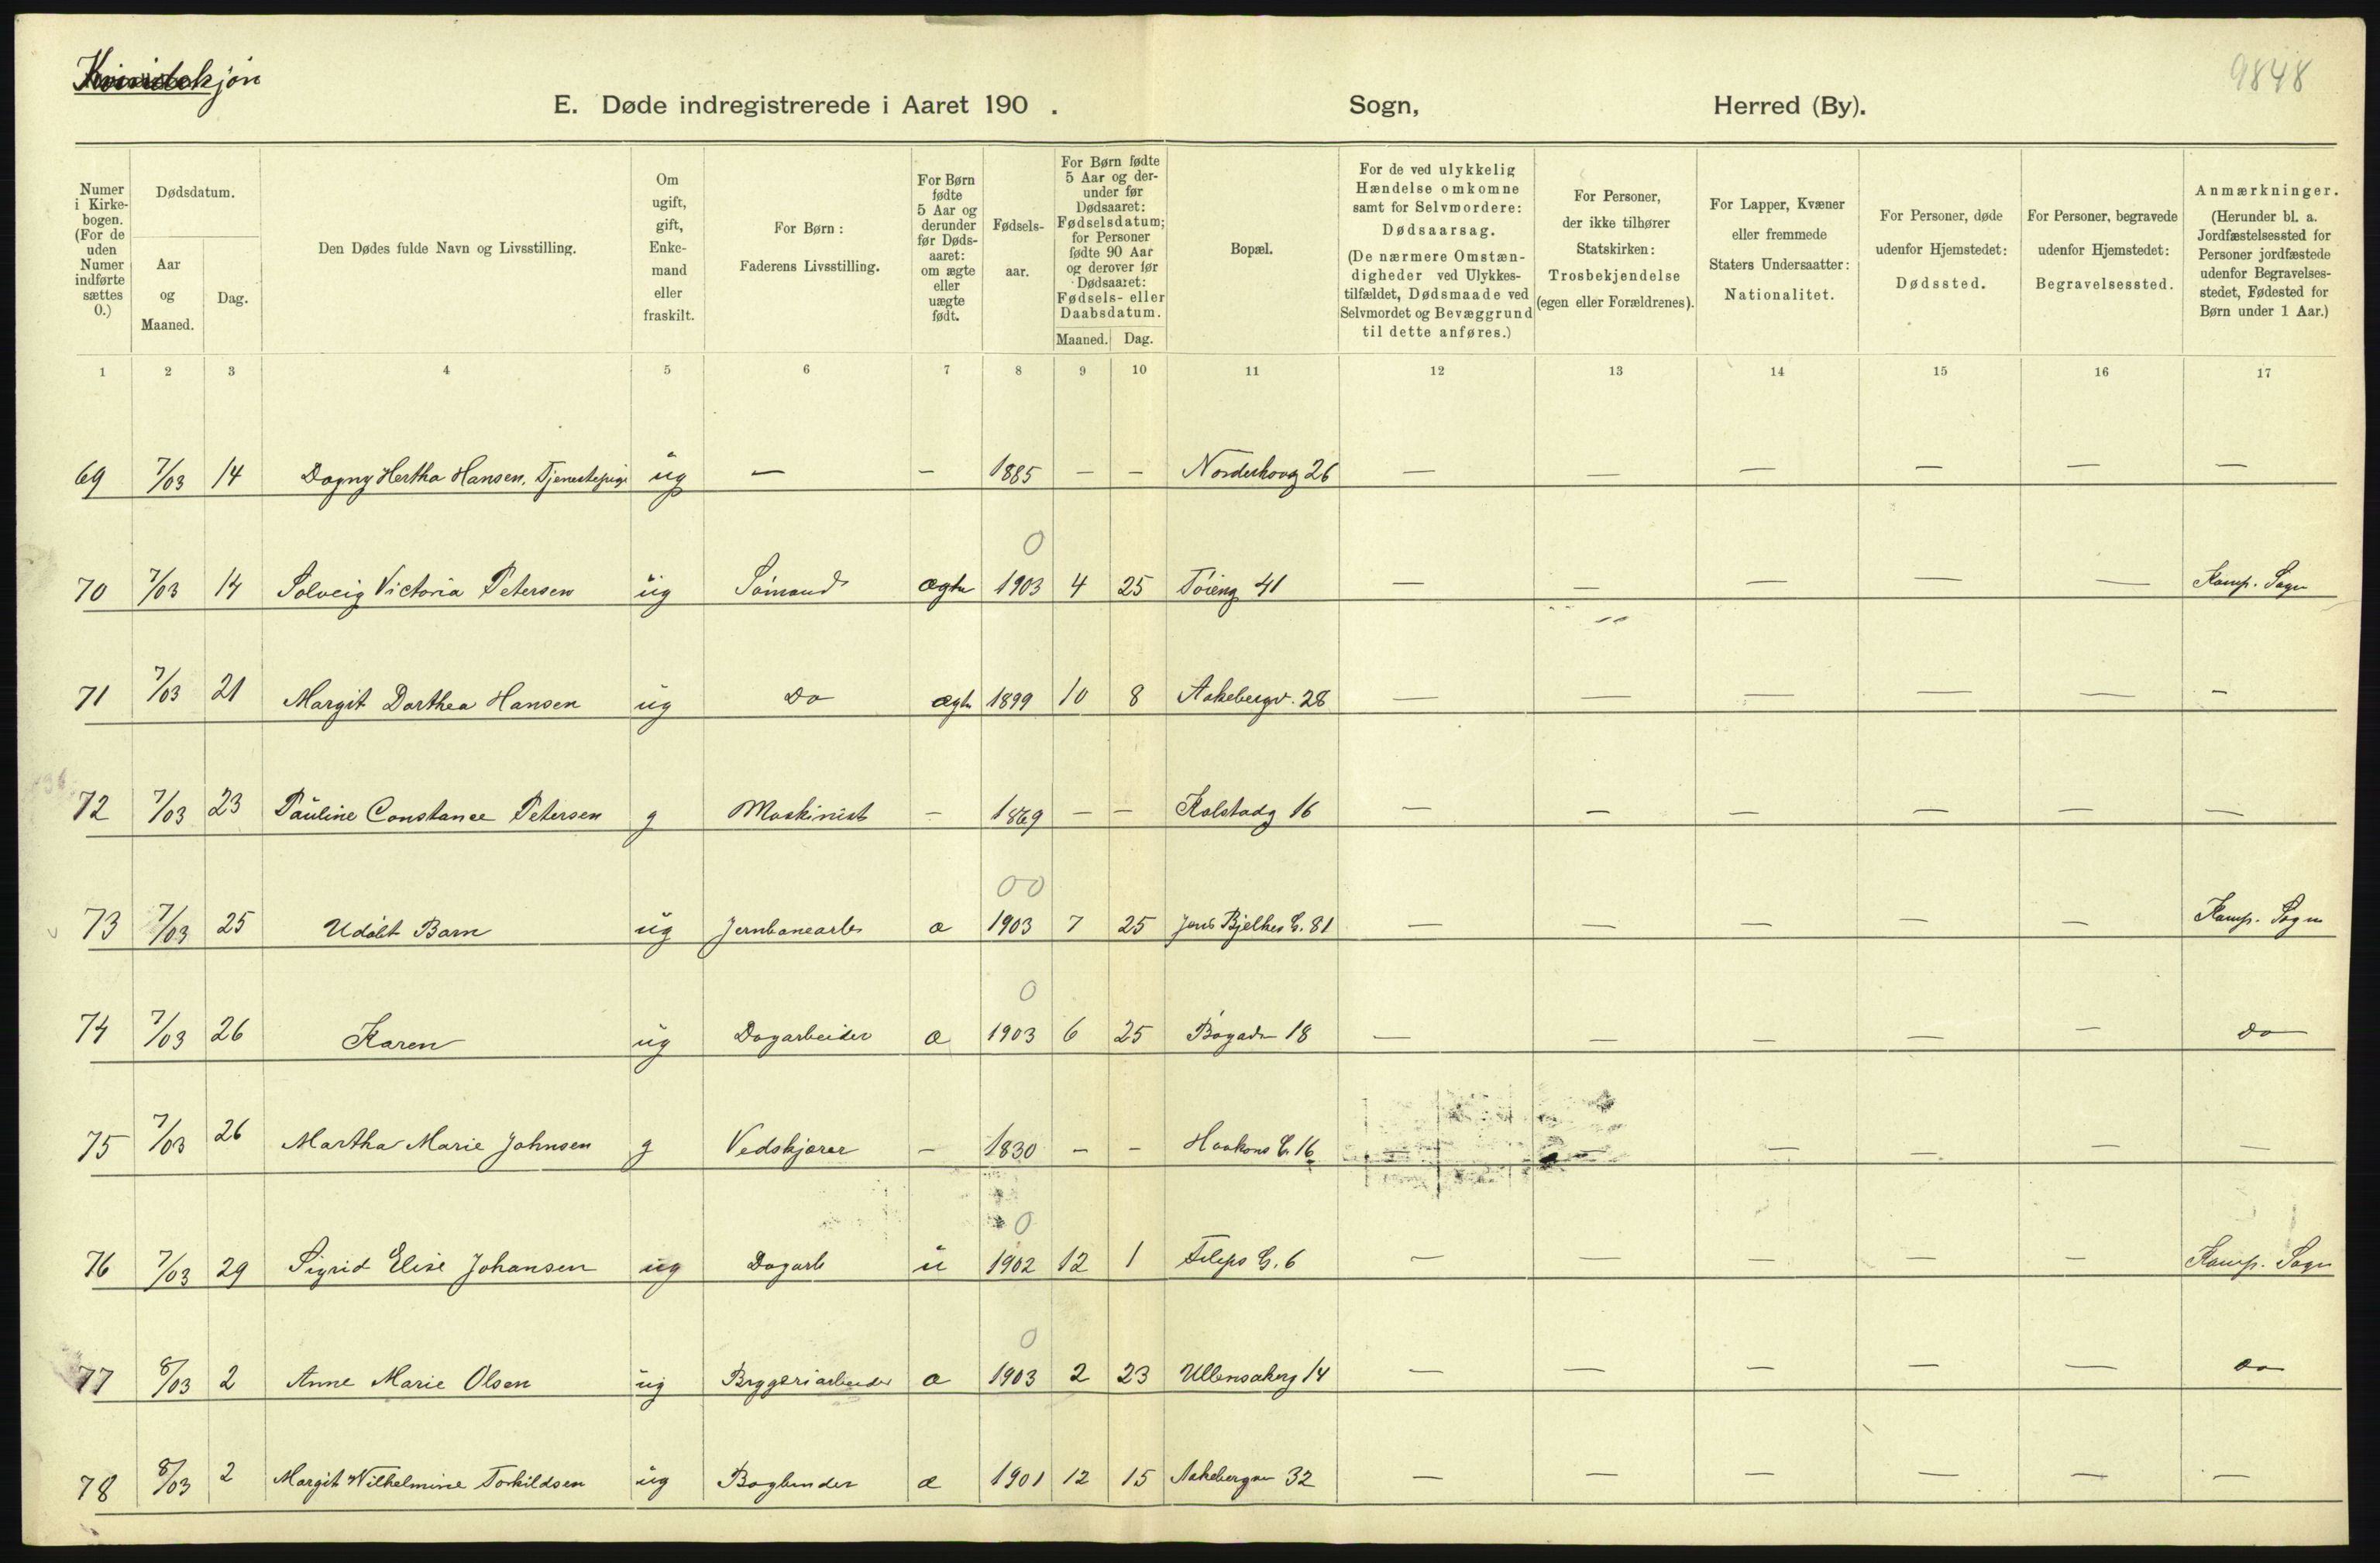 Kvindekjøn
9848
E. Døde indregistrerede i Aaret 190 . Sogn, Herred (By).
Numer i Kirke-bogen. (For de uden Numer indførte sættes 0.)
Dødsdatum.
Aar og Maaned.
Dag.
Den Dødes fulde Navn og Livsstilling.
Om ugift, gift, Enke-mand eller fraskilt.
For Børn: Faderens Livsstilling.
For Børn fødte 5 Aar og derunder før Døds-aaret: om ægte eller uægte født.
Fødsels-aar.
For Børn fødte 5 Aar og der-under før Dødsaaret: Fødselsdatum; for Personer fødte 90 Aar og derover før Dødsaaret: Fødsels- eller Daabsdatum.
Maaned. Dag.
Bopæl.
For de ved ulykkelig Hændelse omkomne samt for Selvmordere: Dødsaarsag. (De nærmere Omstæn-digheder ved Ulykkes-tilfældet, Dødsmaade ved Selvmordet og Bevæggrund til dette anføres.)
For Personer, der ikke tilhører Statskirken: Trosbekjendelse (egen eller Forældrenes).
For Lapper, Kvæner eller fremmede Staters Undersaatter: Nationalitet.
For Personer, døde udenfor Hjemstedet: Dødssted.
For Personer, begravede udenfor Hjemstedet: Begravelsessted.
Anmærkninger. (Herunder bl. a. Jordfæstelsessted for Personer jordfæstede udenfor Begravelses-stedet, Fødested for Børn under 1 Aar.)
1 2 3 4 5 6 7 8 9 10 11 12 13 14 15 16 17
69 7/03 14 Dagny Hertha Hansen, Tjenestepige ug — — 1885 — — Norderhovg 26 — — — — — —
0
70 7/03 14 Solveig Victoria Petersen ug Sømand ægte 1903 4 25 Tøieng 41 — — — — — Kamp. Sogn
71 7/03 21 Margit Dorthea Hansen ug Do ægte 1899 10 8 Aakebergv. 28 — — — — — —
72 7/03 23 Pauline Constance Petersen g Maskinist — 1869 — — Kalstadg 16 — — — — — —
00
73 7/03 25 Udøbt Barn ug Jernbanearb æ 1903 7 25 Jens Bjelkes G. 81 — — — — — Kamp. Sogn
0
74 7/03 26 Karen ug Dagarbeider æ 1903 6 25 Bøgade 18 — — — — — do
75 7/03 26 Martha Marie Johnsen g Vedskjærer — 1830 — — Haakons G. 16 — — — — — —
0
76 7/03 29 Sigrid Elise Johansen ug Dagarb u 1902 12 1 Filips G. 6 — — — — — Kamp. Sogn
0
77 8/03 2 Anne Marie Olsen ug Bryggeriarbeider æ 1903 2 23 Ullensakerg 14 — — — — — do
78 8/03 2 Margit Wilhelmine Torkildsen ug Bogbinder æ 1901 12 15 Aakebergvn 32 — — — — — —